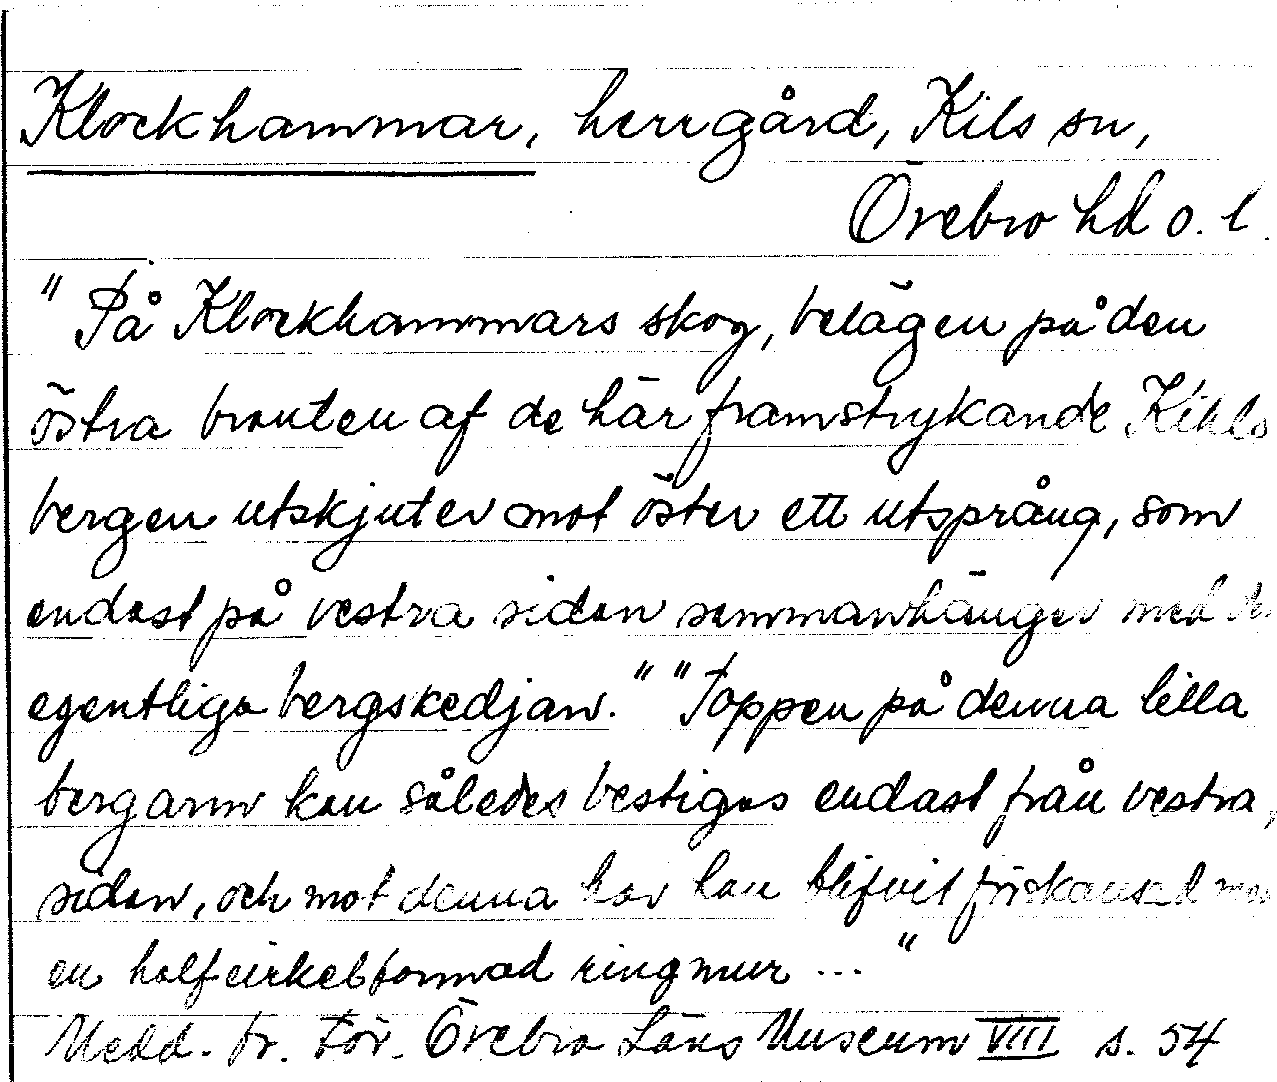 Klockhammar, herrgård, Kils sn,
Örebro hd o. l.
"På Klockhammars skog, belägen på den
östra branten af de här framstrykande Kihls
bergen utskjuter mot öster ett utsprång, som
endast på vestra sidan sammanhänger med de
egentliga bergskedjan." "Toppen på denna lilla
bergarm kan således bestigas endast från vestra,
sidan, och mot denna har han blifvit förskansad med
en halfcirkelformad ringmur ... "
Medd. fr. För. Örebro Läns Museum VIII s. 54